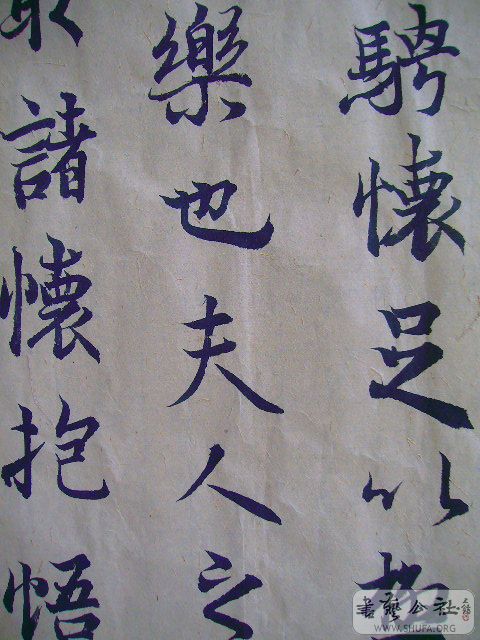 騁懷足以極
樂也夫人之
取諸懷抱悟
書藝公社
WWW.SHUFA.ORG